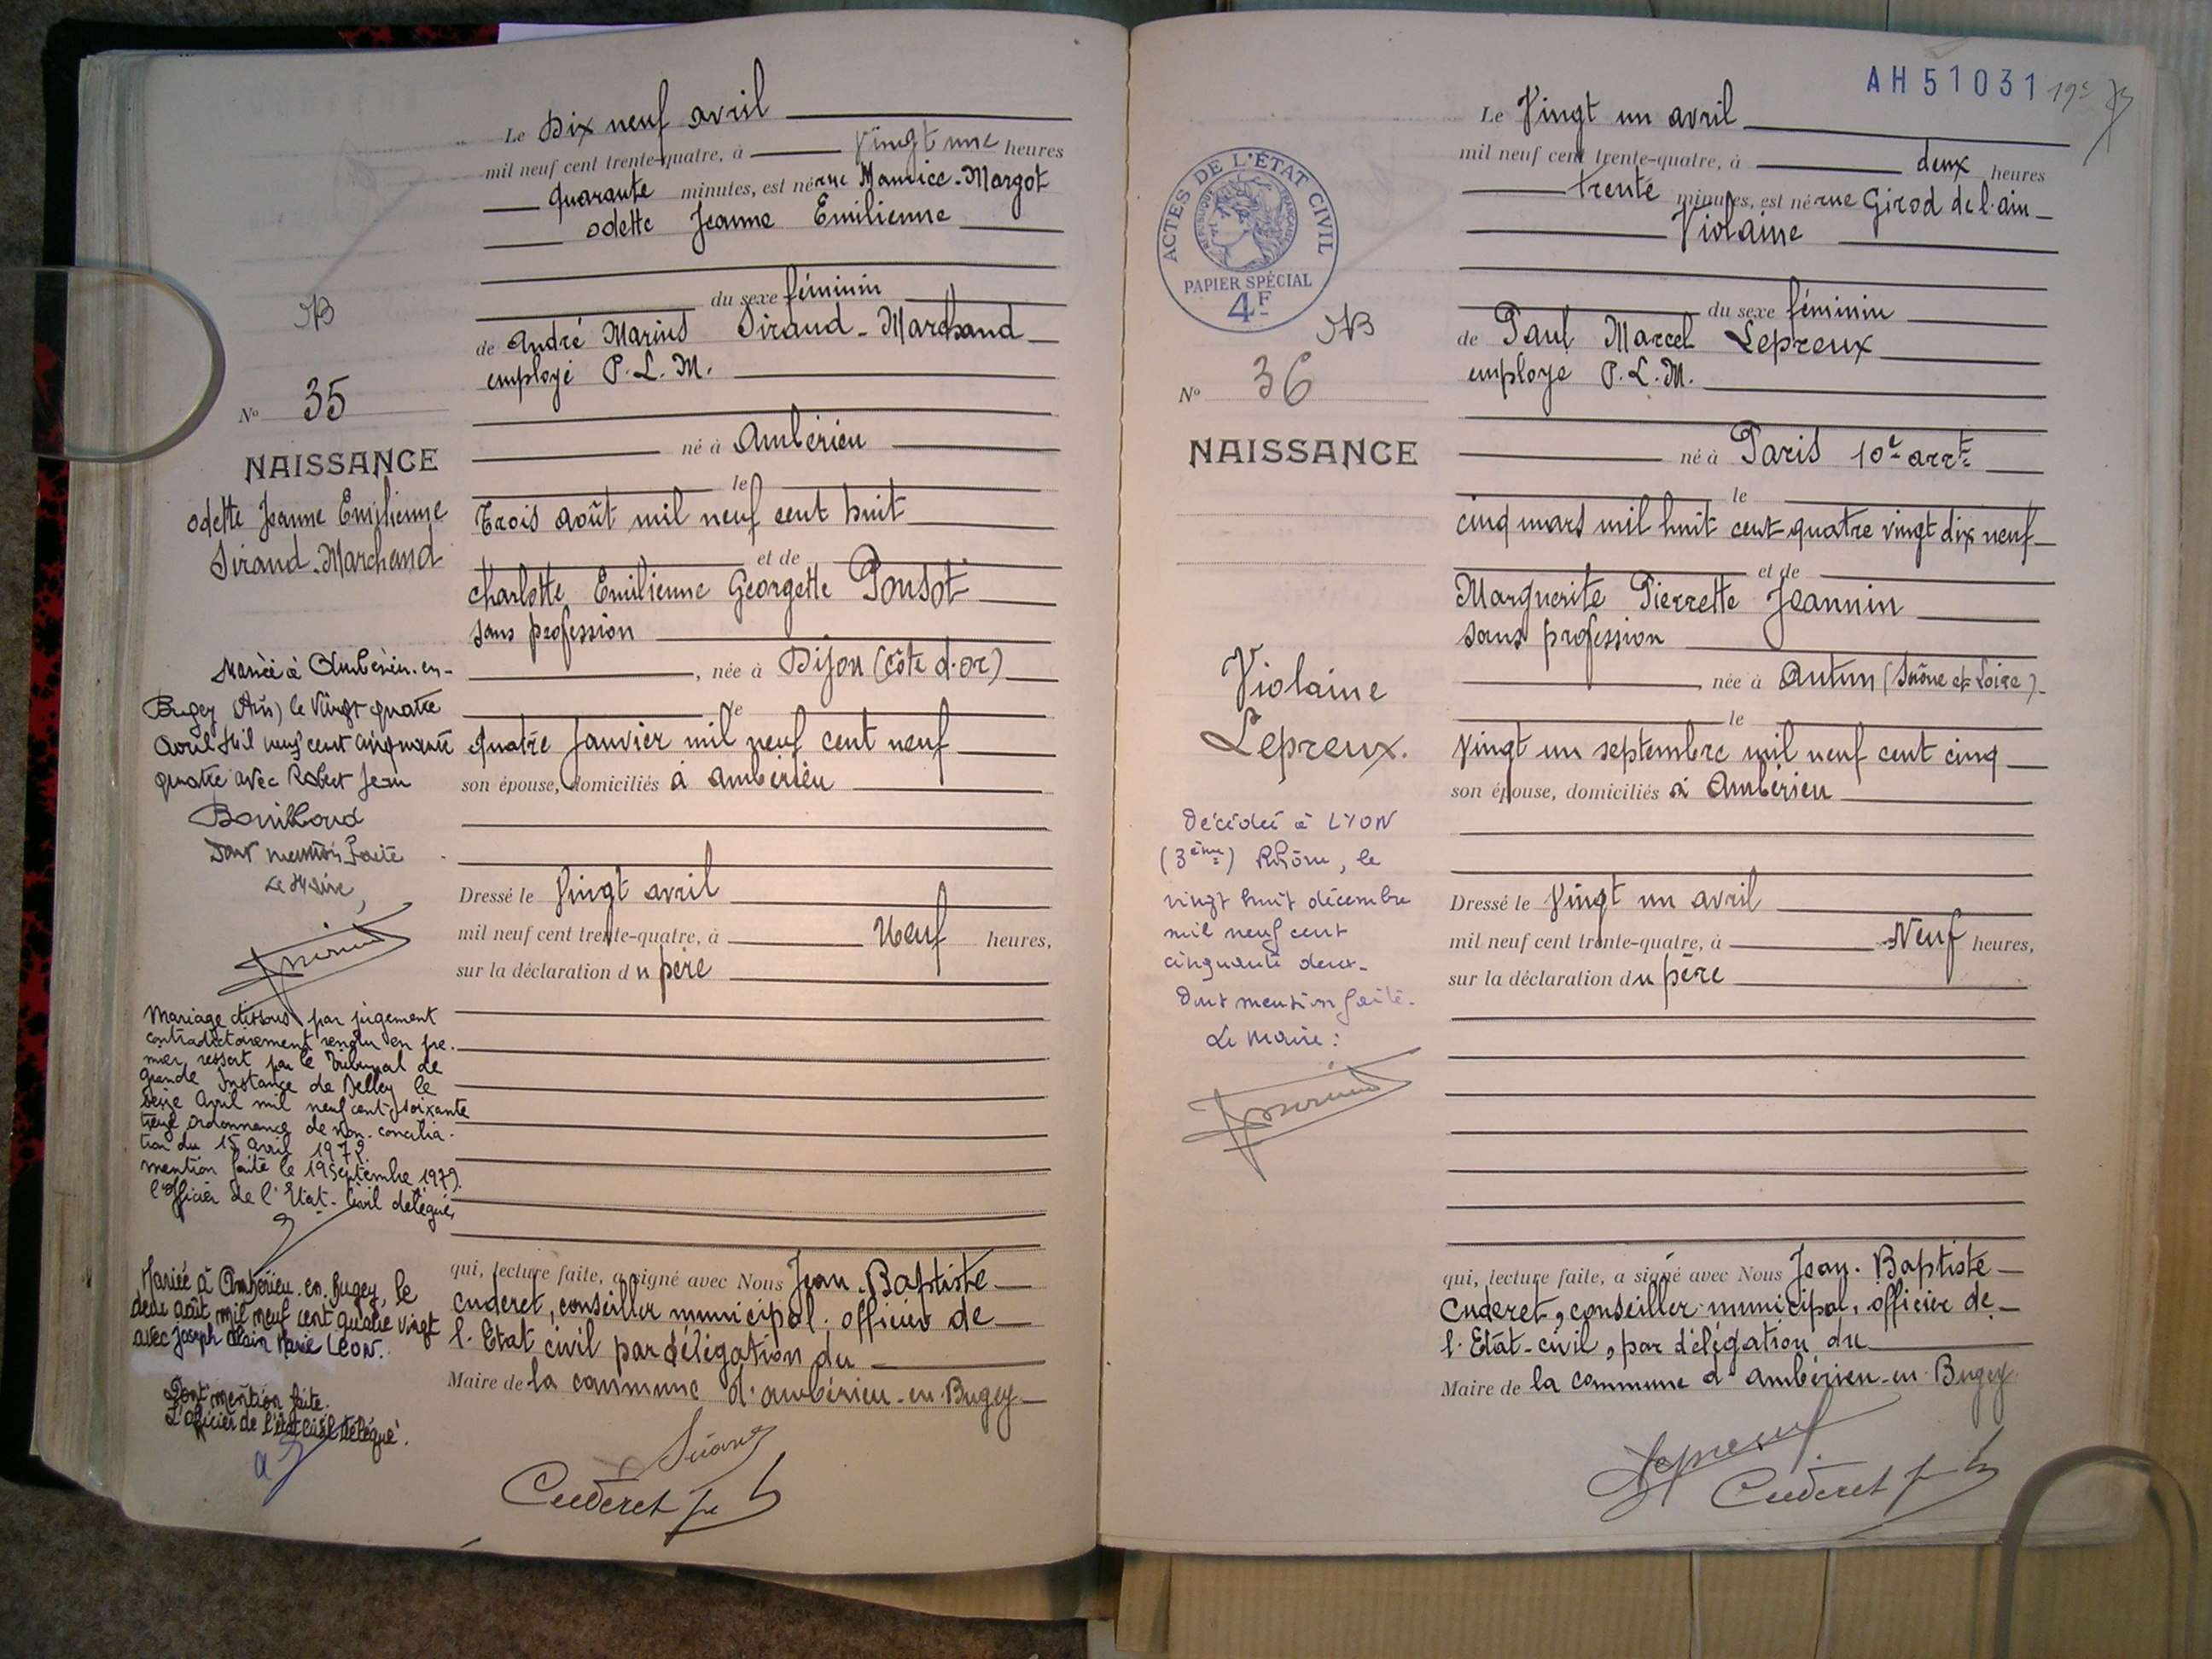 Le Dix neuf avril
mil neuf cent trente-quatre, à Vingt une heures
quarante minutes, est né rue Maurice-Margot
odette Jeanne Emilienne
du sexe féminin
de André Marius Siraud-Marchand
employé P.L.M.
né à Ambérieu
le
Trois août mil neuf cent huit
et de
Charlotte Emilienne Georgette Ponsot
sans profession
, née à Dijon (Côte d'or)
le
quatre Janvier mil neuf cent neuf
son épouse, domiciliés à Ambérieu
Dressé le Vingt avril
mil neuf cent trente-quatre, à Neuf heures,
sur la déclaration du père
qui, lecture faite, a signé avec Nous Jean-Baptiste
Cuderet, conseiller municipal officier de
l'Etat civil par délégation du
Maire de la commune d'Ambérieu-en-Bugey
Cuderet
N° 35
NAISSANCE
odette Jeanne Emilienne
Siraud-Marchand
Mariée à Ambérieu-en-
Bugey (Ain) le vingt quatre
avril mil neuf cent cinquante
quatre avec Robert Jean
Bouilloud
Dont mention faite
Le Maire,
Mariage dissous par jugement
contradictoirement rendu en pre-
mier ressort par le Tribunal de
grande Instance de Belley le
seize Avril mil neuf cent soixante
treize ordonnance de non-concilia-
tion du 15 avril 1972.
mention faite le 19 septembre 1979.
l'officier de l'Etat-Civil délégué,
Mariée à Ambérieu-en-Bugey, le
deux août mil neuf cent quatre vingt
avec Joseph Alain Marie LEON.
Dont mention faite.
L'officier de l'état civil délégué.
AH51031
Le Vingt un avril
mil neuf cent trente-quatre, à deux heures
trente minutes, est né rue Girod de l'ain
Violaine
du sexe féminin
de Paul Marcel Lepreux
employé P.L.M.
né à Paris 10e arrt
le
cinq mars mil huit cent quatre vingt dix neuf
et de
Marguerite Pierrette Jeannin
sans profession
, née à Autun (Saône et Loire)
le
vingt un septembre mil neuf cent cinq
son épouse, domiciliés à Ambérieu
Dressé le Vingt un avril
mil neuf cent trente-quatre, à Neuf heures,
sur la déclaration du père
qui, lecture faite, a signé avec Nous Jean-Baptiste
Cuderet, conseiller municipal, officier de
l'Etat-civil, par délégation du
Maire de la commune d'Ambérieu-en-Bugey
Lepreux
Cuderet
ACTES DE L'ÉTAT CIVIL
RÉPUBLIQUE FRANÇAISE
PAPIER SPÉCIAL
4F
N° 36
NAISSANCE
Violaine
Lepreux.
Décédée à LYON
(3ème) Rhône, le
vingt huit décembre
mil neuf cent
cinquante deux.
Dont mention faite.
Le Maire :